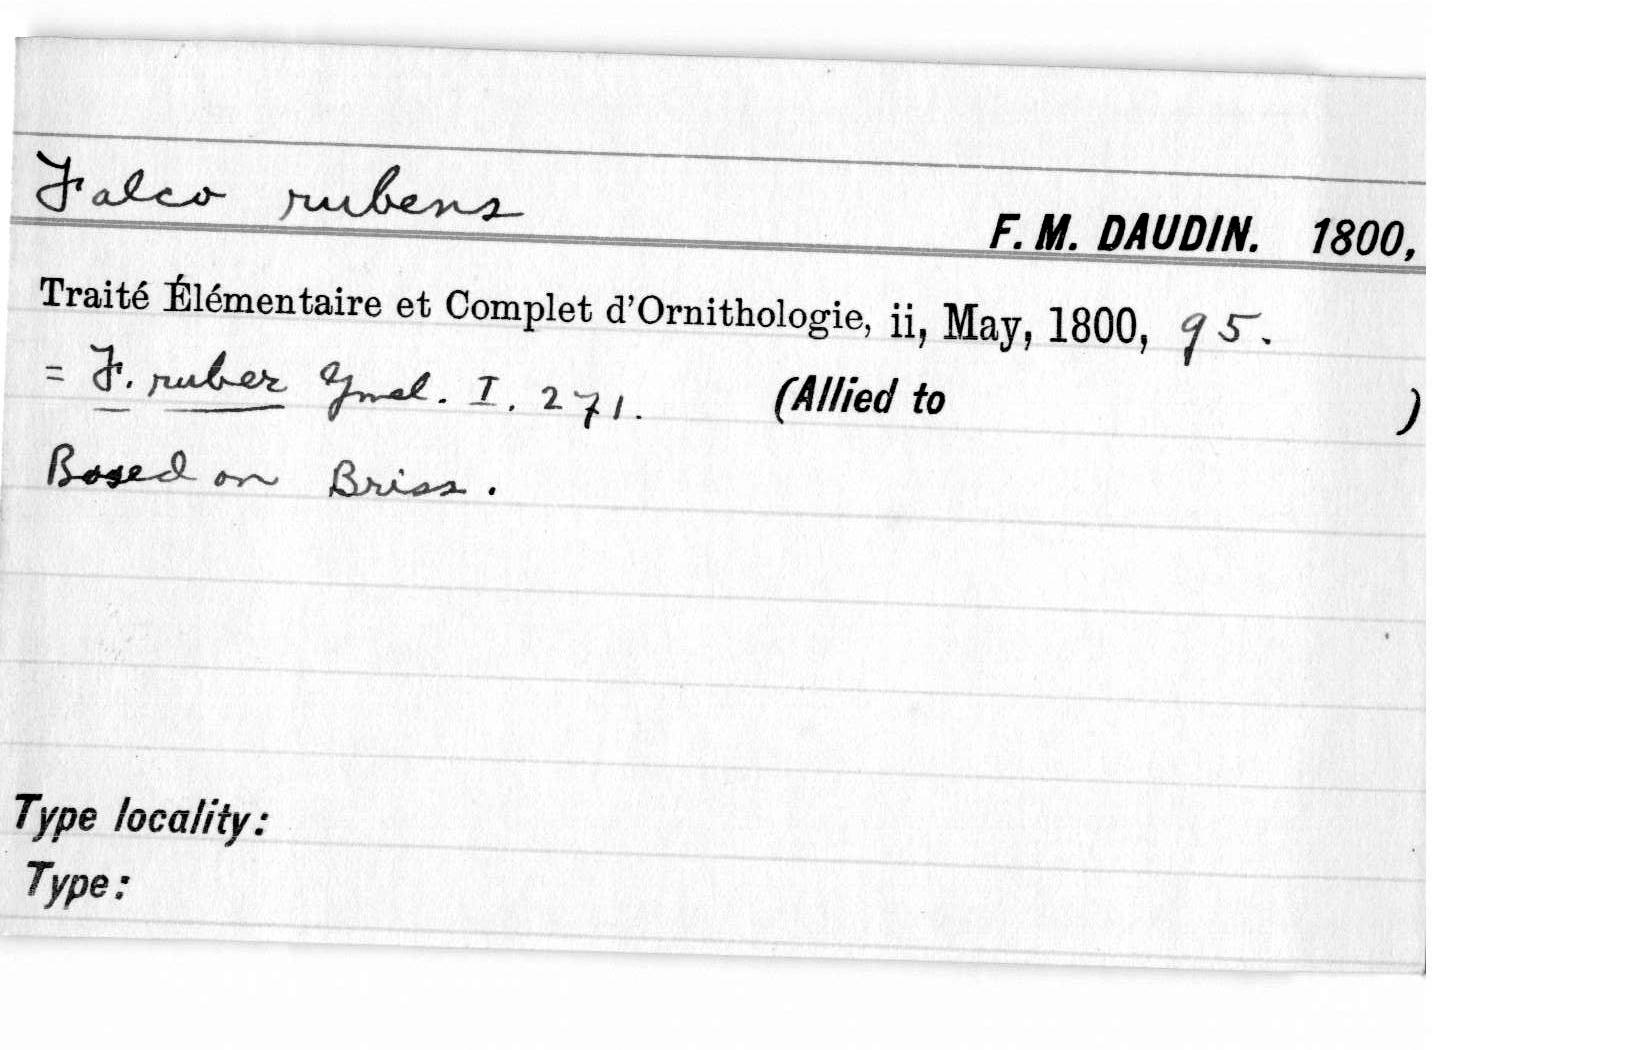 Falco rubens
F. M. DAUDIN. 1800,
Traité Élémentaire et Complet d'Ornithologie, ii, May, 1800, 95.
= F. ruber Gmel. I. 271. (Allied to )
Based on Briss.
Type locality:
Type: